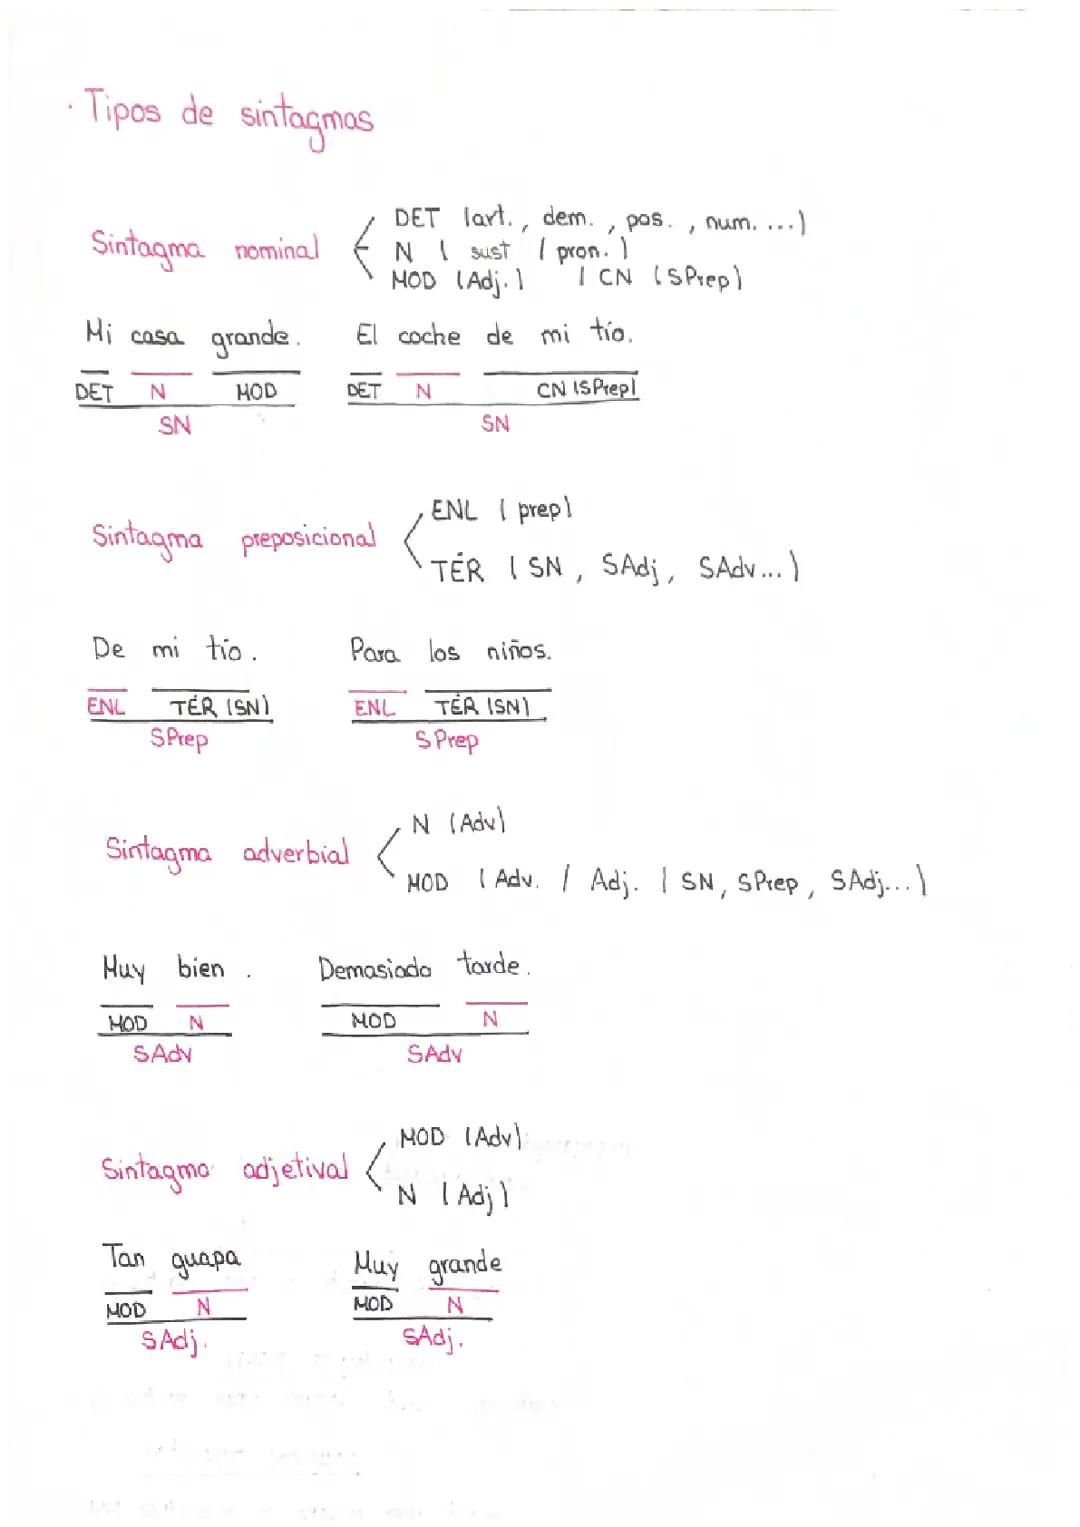 · Tipos de sintagmas
DET (art., dem., pos., num. ...)
Sintagma nominal
N ( sust / pron. )
MOD (Adj.) / CN (SPrep)
Mi casa grande. El coche de mi tío.
DET N MOD DET N CN (SPrep)
SN SN
ENL ( prep)
Sintagma preposicional
TÉR ( SN, SAdj, SAdv...)
De mi tío. Para los niños.
ENL TÉR (SN) ENL TÉR (SN)
SPrep SPrep
N (Adv)
Sintagma adverbial
MOD ( Adv. / Adj. ( SN, SPrep, SAdj...)
Muy bien. Demasiado tarde.
MOD N MOD N
SAdv SAdv
MOD (Adv)
Sintagma adjetival
N (Adj)
Tan guapa Muy grande
MOD N MOD N
SAdj. SAdj.